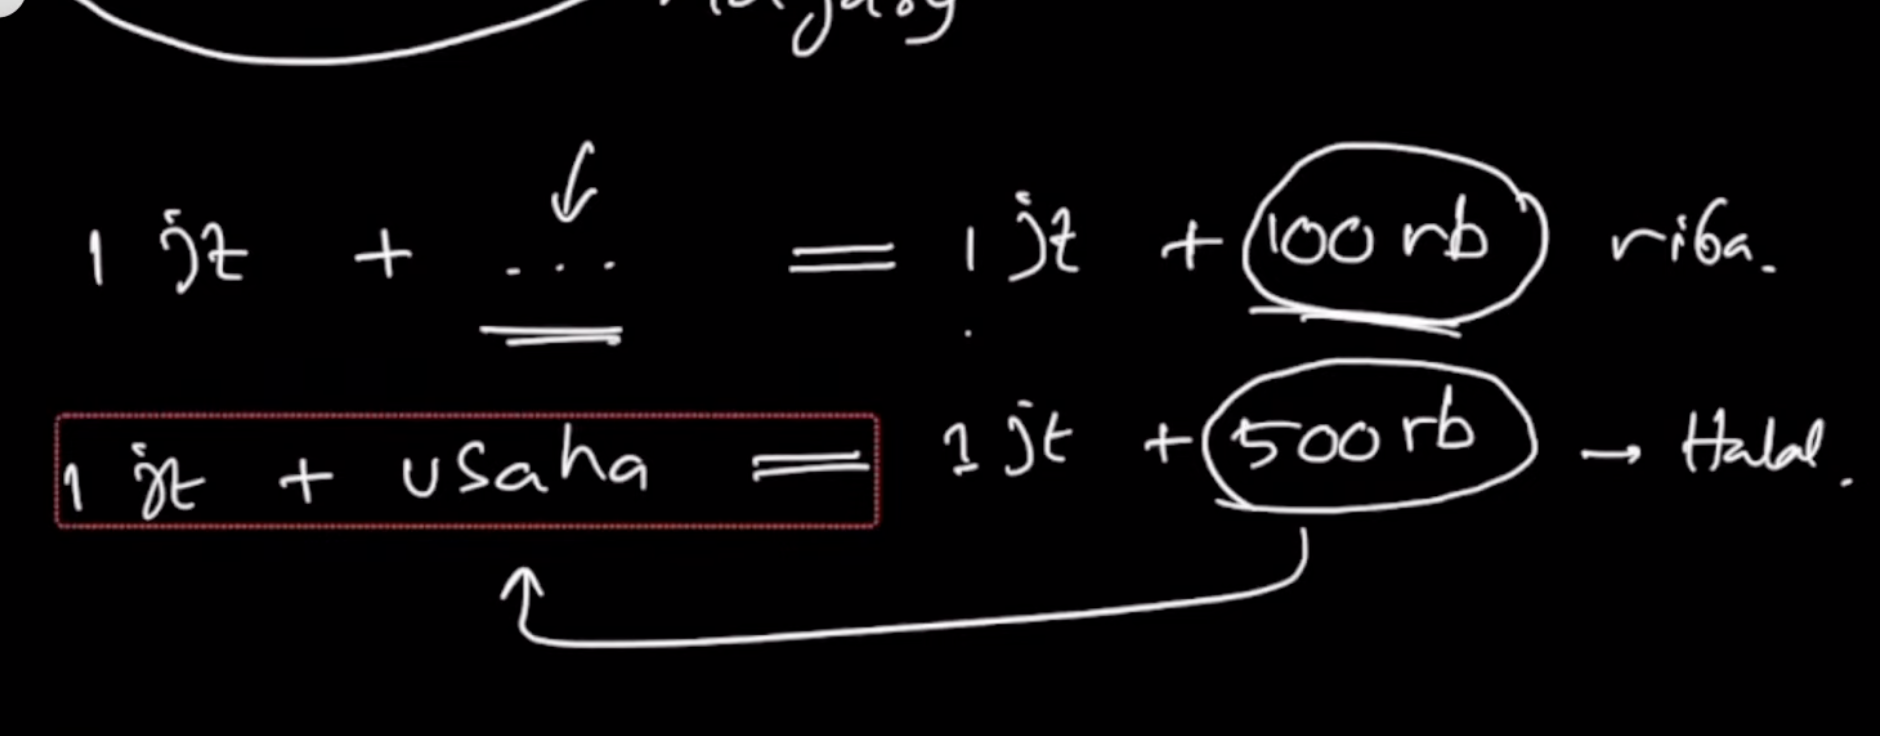 1 jt + ... = 1 jt + 100 rb riba.
1 jt + usaha = 1 jt + 500 rb → Halal.